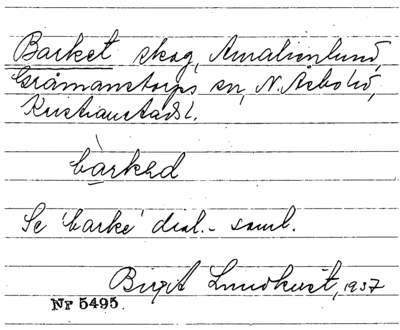 Barket skog, Amalienlund,
Gråmanstorps sn, N. Åsbo hd,
Kristianstads l.
bàrkəd
Se 'barke' dial.- saml.
Birgit Lundkvist, 1937
Nr 5495.